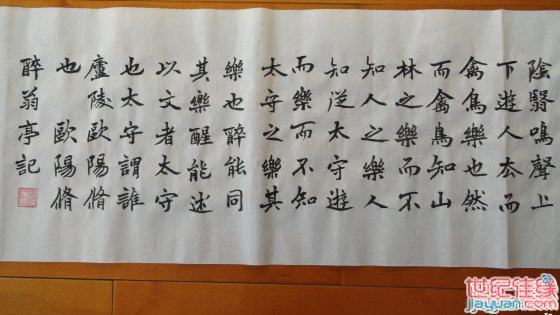 陰翳鳴聲上
下遊人去而
禽鳥樂也然
而禽鳥知山
林之樂而不
知人之樂人
知從太守遊
而樂而不知
太守之樂其
樂也醉能同
其樂醒能述
以文者太守
也太守謂誰
廬陵歐陽脩
也 歐陽脩
醉翁亭記
世纪佳缘
jiayuan.com